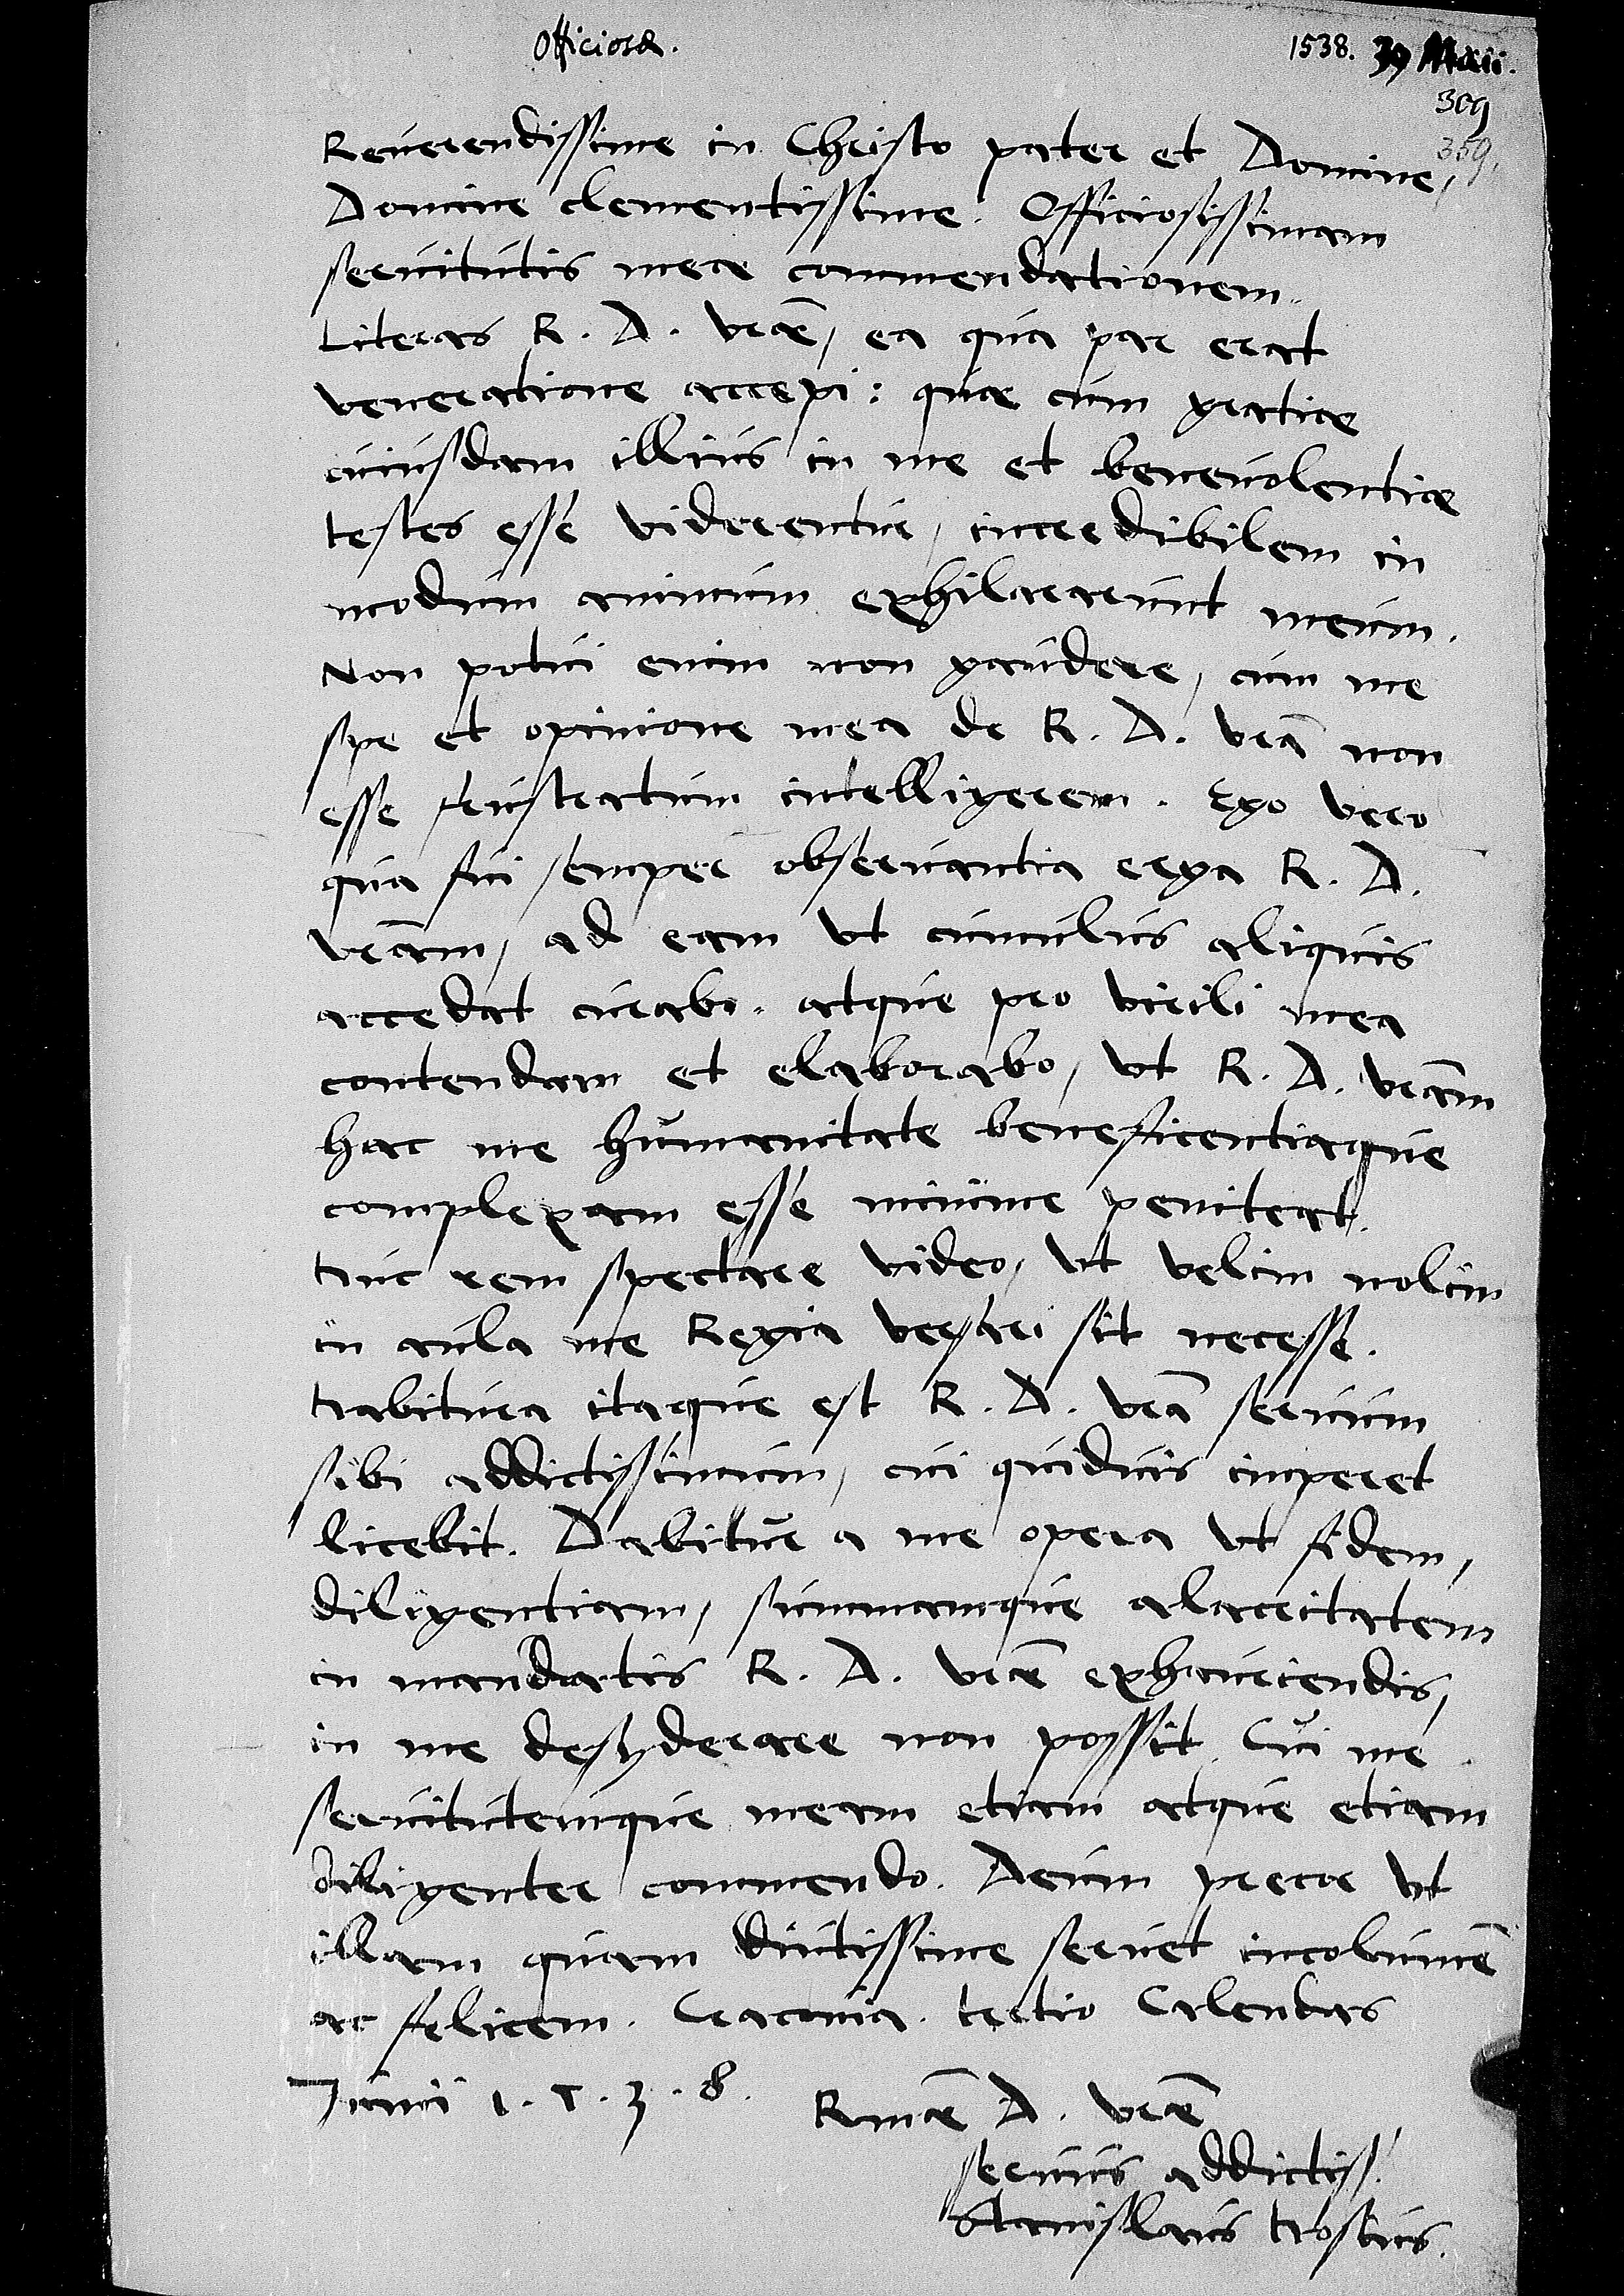 Officiosae.
1538. 30 Maii.
309
359.
Reuerendissime in Christo pater et Domine,
Domine clementissime. Officiosissimam
seruitutis meae commendationem.
Literas R. D. vrae, ea qua par erat
veneratione accepi: quae cum gratiae
cuiusdam illius in me et beneuolentiae
testes esse viderentur, incredibilem in
modum animum exhilararunt meum.
Non potui enim non gaudere, cum me
spe et opinione mea de R. D. vra non
esse frustratum intelligerem. Ego vero
qua fui semper obseruantia erga R. D.
vram, ad eam vt cumulus aliquis
accedat curabo. atque pro virili mea
contendam et elaborabo, vt R. D. vram
hac me humanitate beneficentiaque
complexam esse minime peniteat.
Huc rem spectare video, vt velim nolim
in aula me Regia versari sit necesse.
Habitura itaque est R. D. vra seruum
sibi addictissimum, cui quiduis imperet
licebit. Dabitur a me opera vt fidem,
diligentiam, summamque alacritatem
in mandatis R. D. vrae exhauriendis,
in me desyderare non possit. Cui me
seruitutemque meam etiam atque etiam
diligenter commendo. Deum precor vt
illam quam diutissime seruet incolumē
ac felicem. Cracouia. tertio Calendas
Junii 1.5.3.8. Rmae D. vrae
seruus addictiss.
Stanislaus Hosius.